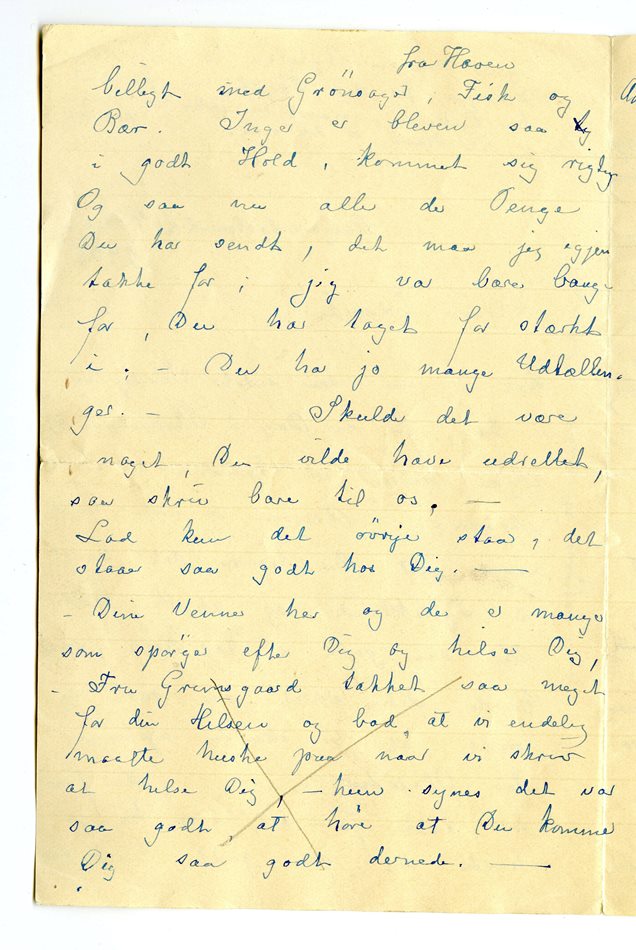 fra Haven
billigt med Grönsager, Fisk og
Bær. Inger er bleven saa
i godt Hold, kommet sig rigtig
Og saa nu alle de Penge
Du har sendt, det maa jeg igjen
takke for; jeg var bare bange
for, Du har taget for stærkt
i; – Du ha jo mange Udtællin-
ger. – Skulde det være
noget, Du vilde have udrettet,
saa skriv bare til os. –
Lad kun det övrige staa, det
staar saa godt hos Dig. –
– Dine Venner her og de er mange
som spörger efter Dig og hilser Dig,
– Fru Grumsgaard takket saa meget
for din Hilsen og bad, at vi endelig
maatte huske paa naar vi skriv
at hilse Dig, – hun synes det var
saa godt, at höre at Du komme
Dig saa godt dernede. –